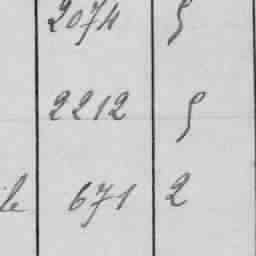 2074 9
2212 9
le 671 2